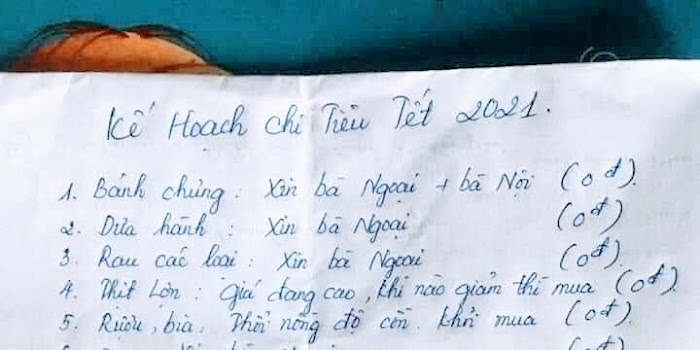 Kế Hoạch chi Tiêu Tết 2021.
1. Bánh chưng: Xin bà Ngoại + bà Nội (0đ).
2. Dưa hành: Xin bà Ngoại (0đ)
3. Rau các loại: Xin bà Ngoại (0đ).
4. Thịt Lợn: Giá đang cao, khi nào giảm thì mua (0đ).
5. Rượu, bia: Thổi nồng độ cồn. Khỏi mua (0đ).